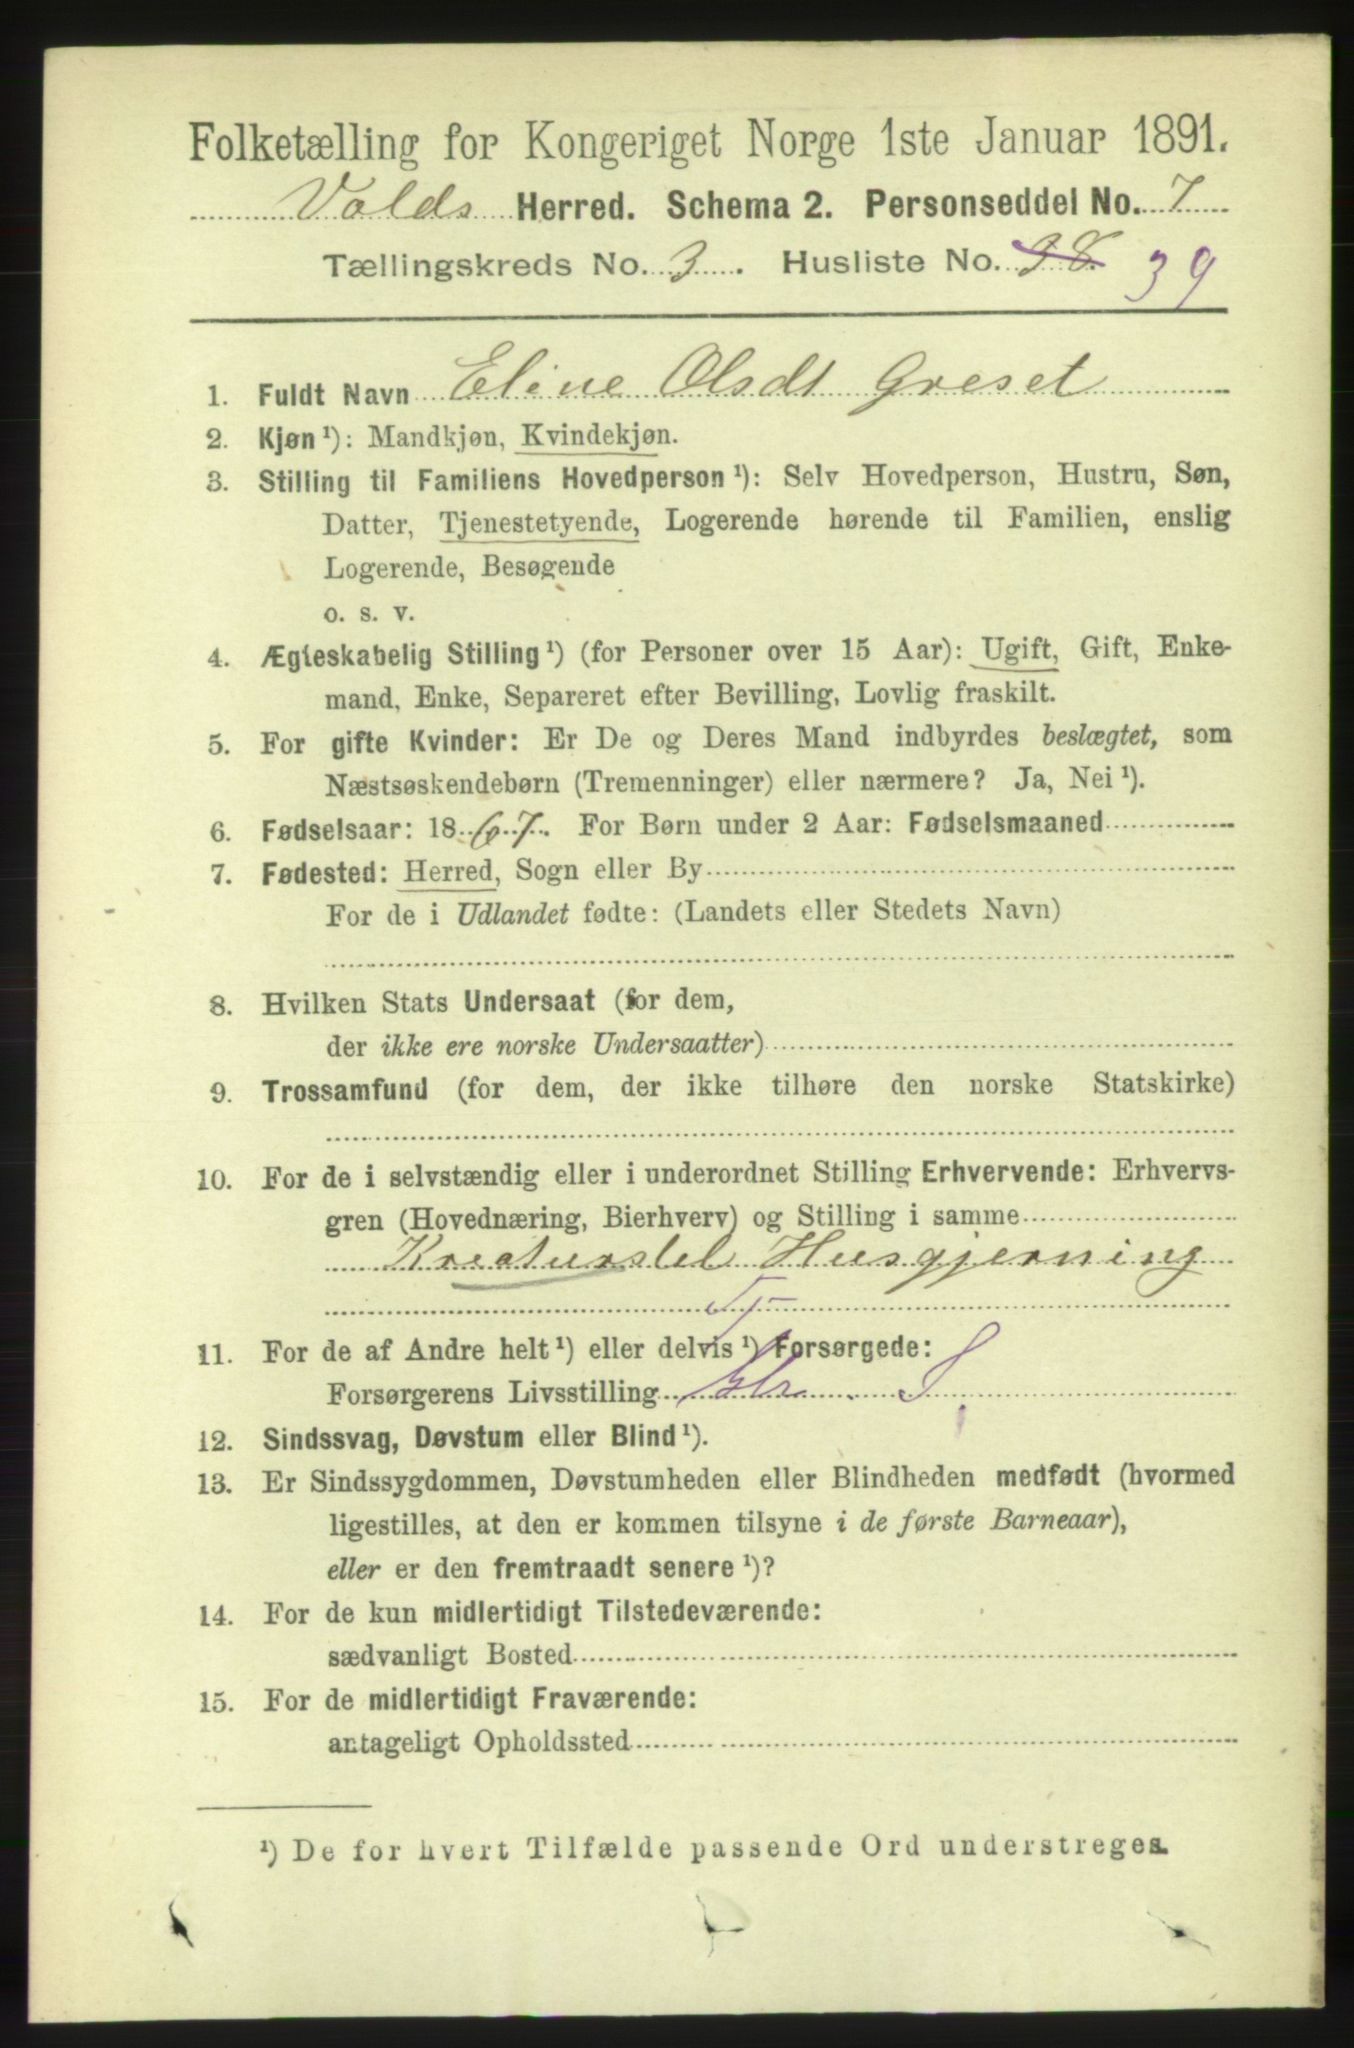 Folketælling for Kongeriget Norge 1ste Januar 1891.
Volds Herred. Schema 2. Personseddel No. 7
Tællingskreds No. 3. Husliste No. 38 39
1. Fuldt Navn Eline Olsdt Greset
2. Kjøn ¹): Mandkjøn, Kvindekjøn.
3. Stilling til Familiens Hovedperson ¹): Selv Hovedperson, Hustru, Søn,
Datter, Tjenestetyende, Logerende hørende til Familien, enslig
Logerende, Besøgende
o. s. v.
4. Ægteskabelig Stilling ¹) (for Personer over 15 Aar): Ugift, Gift, Enke-
mand, Enke, Separeret efter Bevilling, Lovlig fraskilt.
5. For gifte Kvinder: Er De og Deres Mand indbyrdes beslægtet, som
Næstsøskendebørn (Tremenninger) eller nærmere? Ja, Nei ¹).
6. Fødselsaar: 1867. For Børn under 2 Aar: Fødselsmaaned
7. Fødested: Herred, Sogn eller By
For de i Udlandet fødte: (Landets eller Stedets Navn)
8. Hvilken Stats Undersaat (for dem,
der ikke ere norske Undersaatter)
9. Trossamfund (for dem, der ikke tilhøre den norske Statskirke)
10. For de i selvstændig eller i underordnet Stilling Erhvervende: Erhvervs-
gren (Hovednæring, Bierhverv) og Stilling i samme
Kreaturstel Husgjerning
11. For de af Andre helt ¹) eller delvis ¹) Forsørgede:
Forsørgerens Livsstilling
12. Sindssvag, Døvstum eller Blind ¹).
13. Er Sindssygdommen, Døvstumheden eller Blindheden medfødt (hvormed
ligestilles, at den er kommen tilsyne i de første Barneaar),
eller er den fremtraadt senere ¹)?
14. For de kun midlertidigt Tilstedeværende:
sædvanligt Bosted
15. For de midlertidigt Fraværende:
antageligt Opholdssted
¹) De for hvert Tilfælde passende Ord understreges.